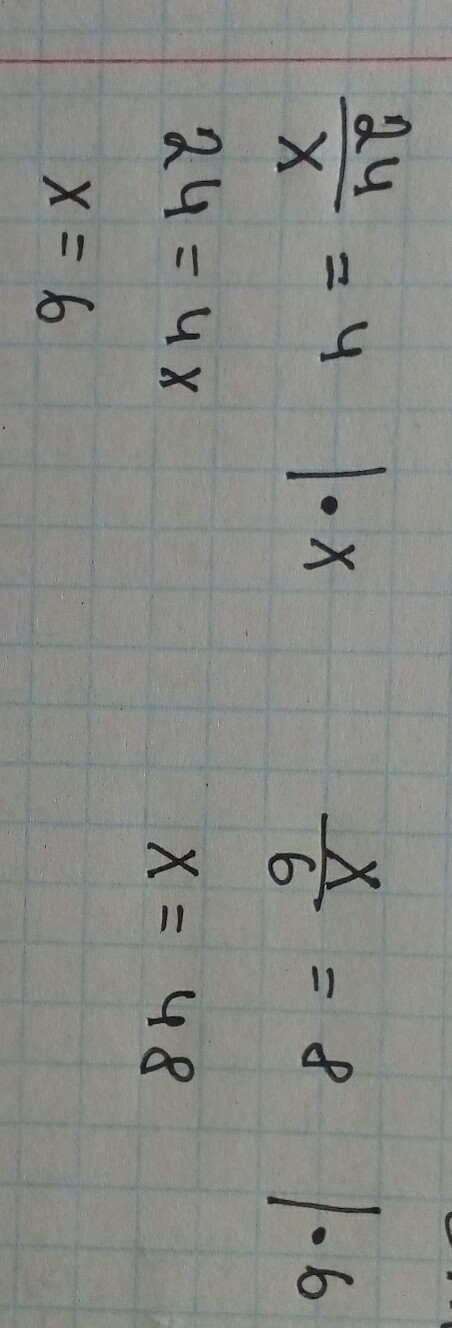 24/x = 4 | • x
24 = 4x
x = 6
x/6 = 8 | • 6
x = 48